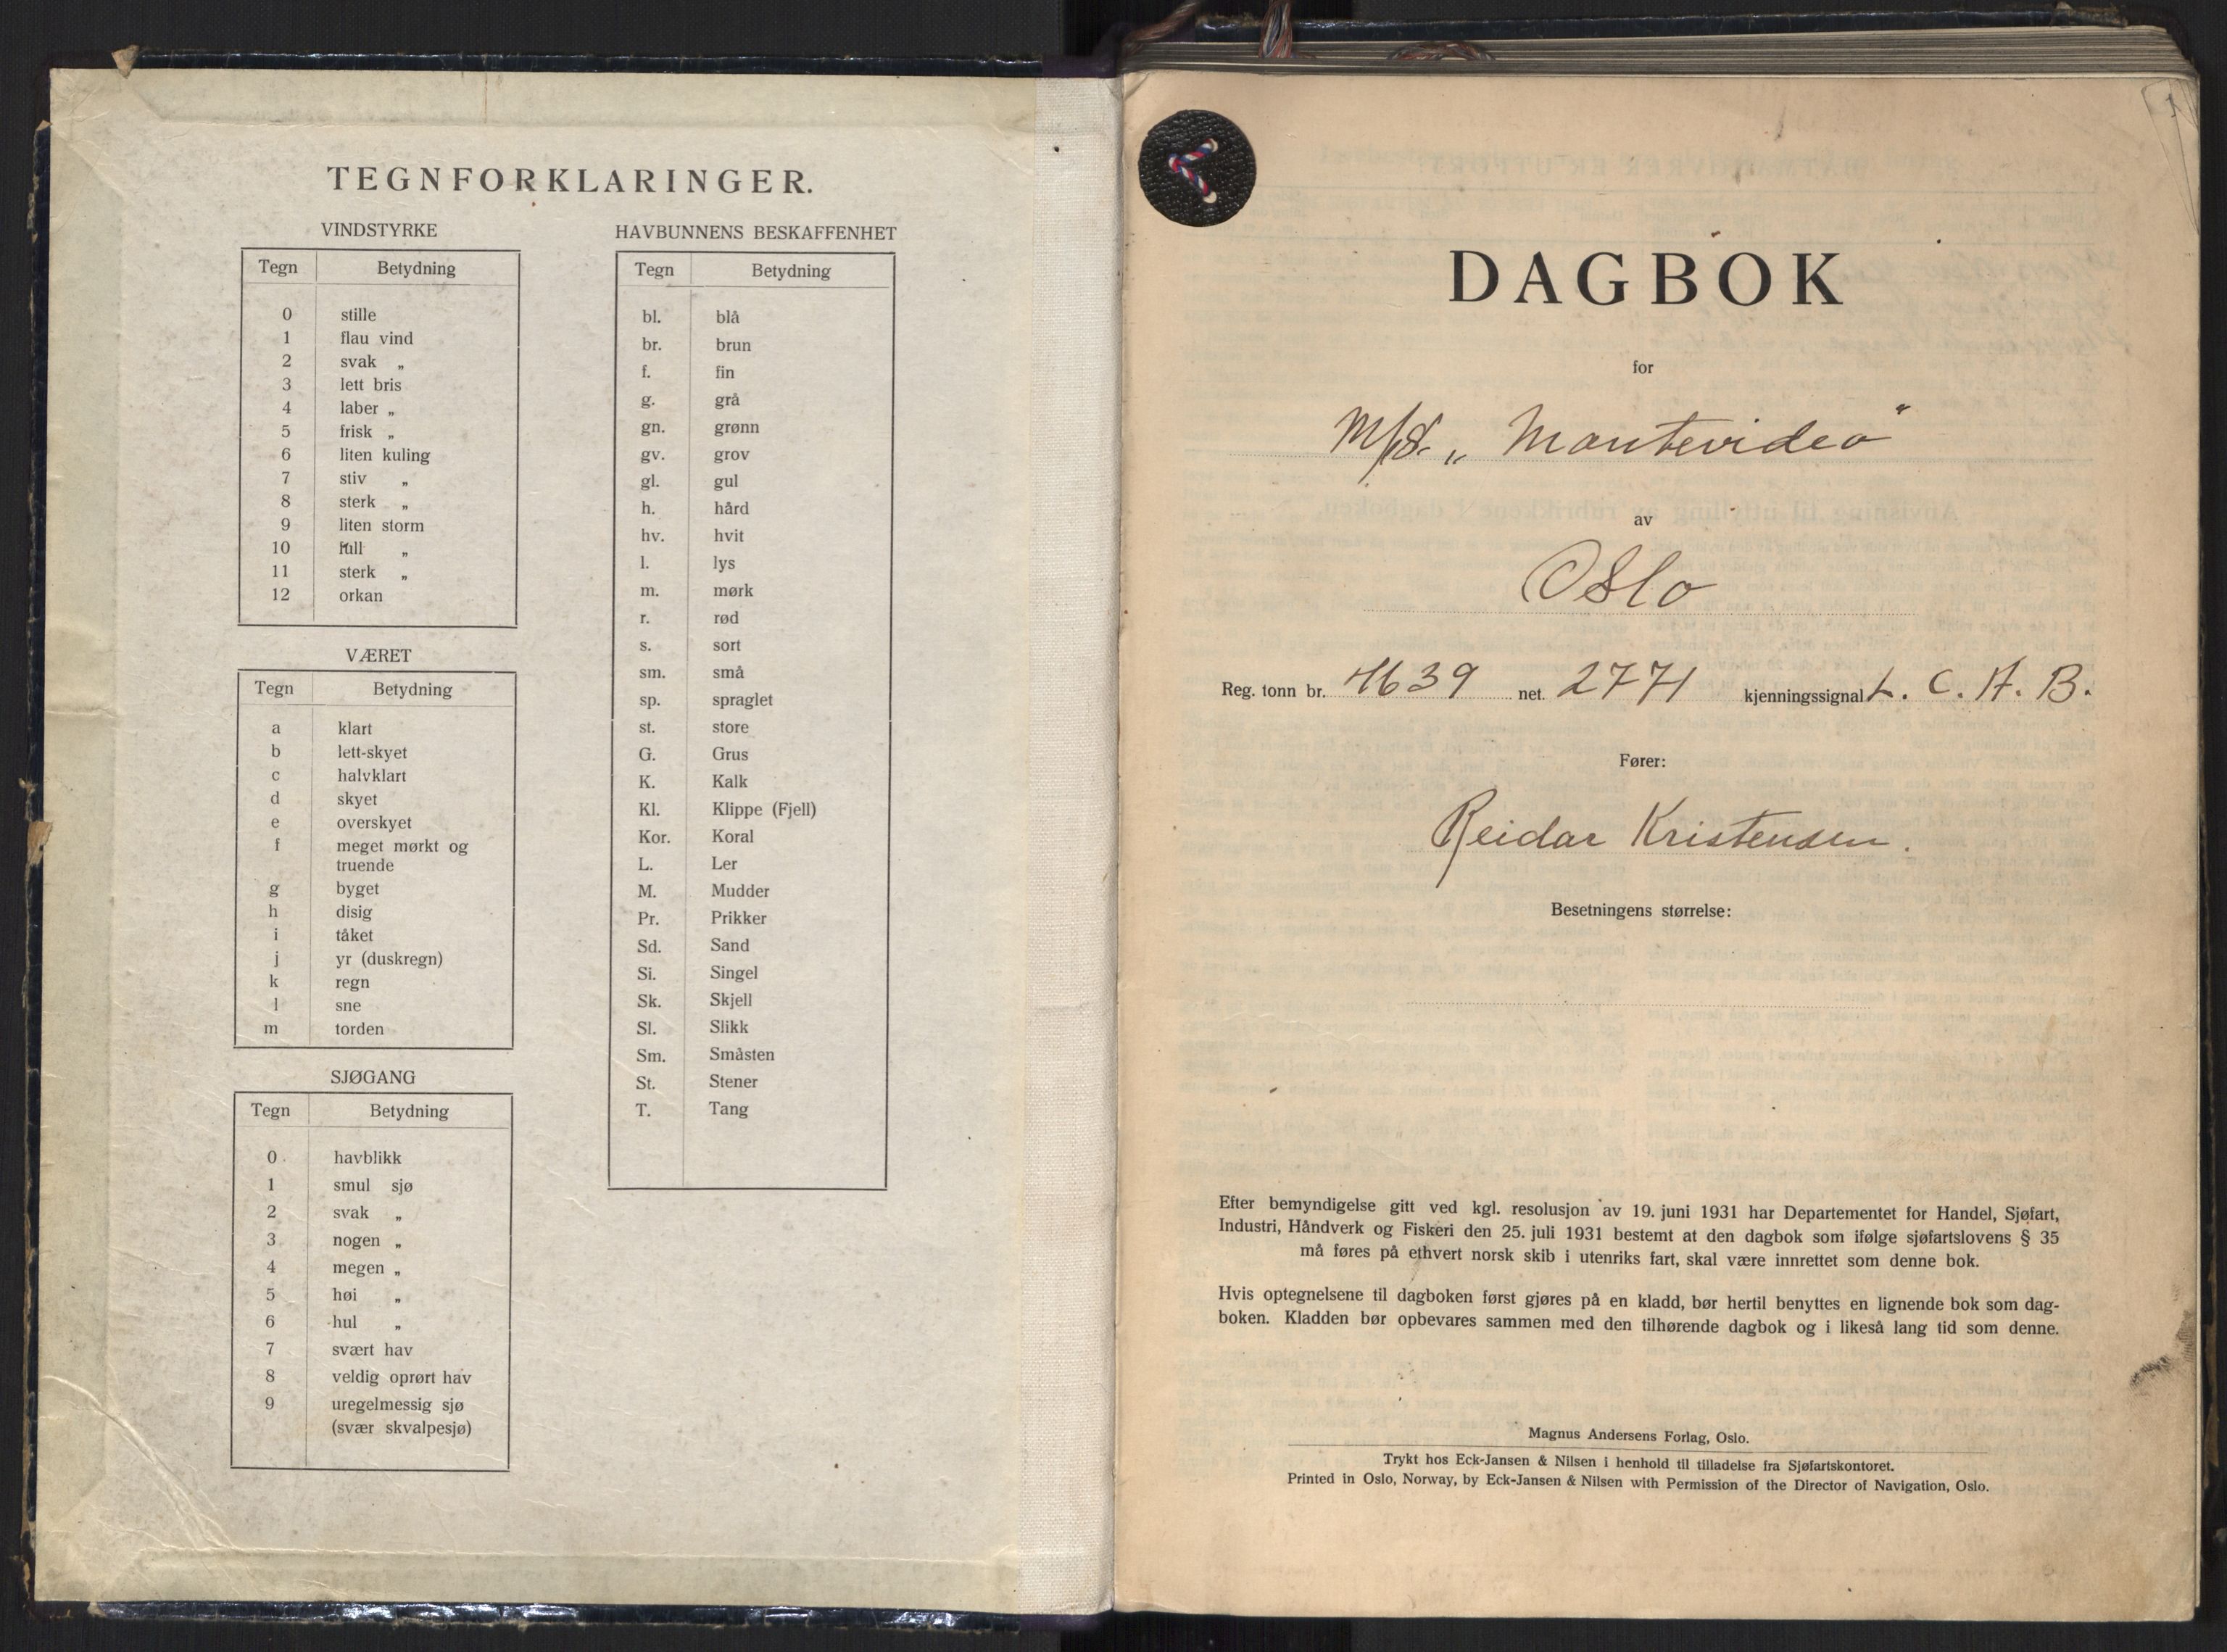 TEGNFORKLARINGER.
VINDSTYRKE
Tegn Betydning
0 stille
1 flau vind
2 svak „
3 lett bris
4 laber „
5 frisk „
6 liten kuling
7 stiv „
8 sterk „
9 liten storm
10 full „
11 sterk „
12 orkan
VÆRET
Tegn Betydning
a klart
b lett-skyet
c halvklart
d skyet
e overskyet
f meget mørkt og
truende
g byget
h disig
i tåket
j yr (duskregn)
k regn
l sne
m torden
SJØGANG
Tegn Betydning
0 havblikk
1 smul sjø
2 svak „
3 nogen „
4 megen „
5 høi „
6 hul „
7 svært hav
8 veldig oprørt hav
9 uregelmessig sjø
(svær skvalpesjø)
HAVBUNNENS BESKAFFENHET
Tegn Betydning
bl. blå
br. brun
f. fin
g. grå
gn. grønn
gv. grov
gl. gul
h. hård
hv. hvit
l. lys
m. mørk
r. rød
s. sort
sm. små
sp. spraglet
st. store
G. Grus
K. Kalk
Kl. Klippe (Fjell)
Kor. Koral
L. Ler
M. Mudder
Pr. Prikker
Sd. Sand
Si. Singel
Sk. Skjell
Sl. Slikk
Sm. Småsten
St. Stener
T. Tang
1
DAGBOK
for
M/S. „Montevideo"
av
Oslo
Reg. tonn br. 4639 net. 2771 kjenningssignal L. C. A. B.
Fører:
Reidar Kristensen.
Besetningens størrelse:
Efter bemyndigelse gitt ved kgl. resolusjon av 19. juni 1931 har Departementet for Handel, Sjøfart,
Industri, Håndverk og Fiskeri den 25. juli 1931 bestemt at den dagbok som ifølge sjøfartslovens § 35
må føres på ethvert norsk skib i utenriks fart, skal være innrettet som denne bok.
Hvis optegnelsene til dagboken først gjøres på en kladd, bør hertil benyttes en lignende bok som dag-
boken. Kladden bør opbevares sammen med den tilhørende dagbok og i likeså lang tid som denne.
Magnus Andersens Forlag, Oslo.
Trykt hos Eck-Jansen & Nilsen i henhold til tilladelse fra Sjøfartskontoret.
Printed in Oslo, Norway, by Eck-Jansen & Nilsen with Permission of the Director of Navigation, Oslo.